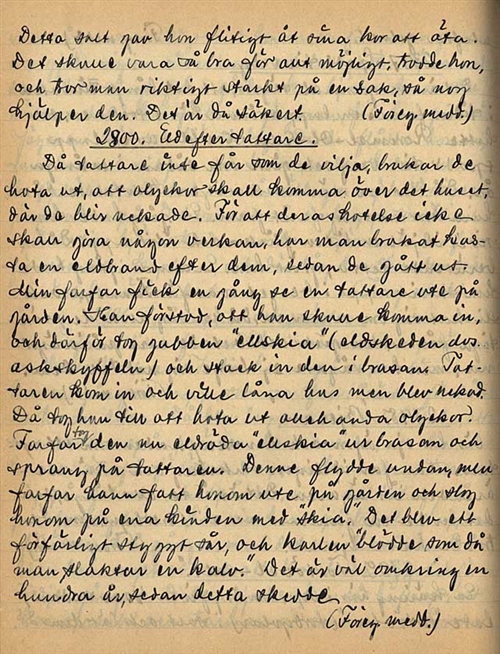 Detta salt gav hon flitigt åt sina kor att äta.
Det skulle vara så bra för allt möjligt, trodde hon,
och tror man riktigt starkt på en sak, så nog
hjälper den. Det är då säkert. (Föreg. medd.)
2800. Eld efter tattare.
Då tattare inte får som de vilja, brukar de
hota ut, att olyckor skall komma över det huset,
där de blir nekade. För att deras hotelse icke
skall göra någon verkan, har man brukat kas-
ta en eldbrand efter dem, sedan de gått ut.
Min farfar fick en gång se en tattare ute på
gården. Han förstod, att han skulle komma in,
och därför tog gubben "ellskia" (eldskeden dvs.
askskyffeln) och stack in den i brasan. Tat-
taren kom in och ville låna hus men blev nekad.
Då tog han till att hota ut allehanda olyckor.
Farfar tog den nu eldröda "ellskia" ur brasan och
sprang på tattaren. Denne flydde undan, men
farfar hann fatt honom ute på gården och slog
honom på ena kinden med "skia." Det blev ett
förfärligt styggt sår, och karlen "blödde som då
man slaktar en kalv." Det är väl omkring en
hundra år, sedan detta skedde
(Föreg. medd.)